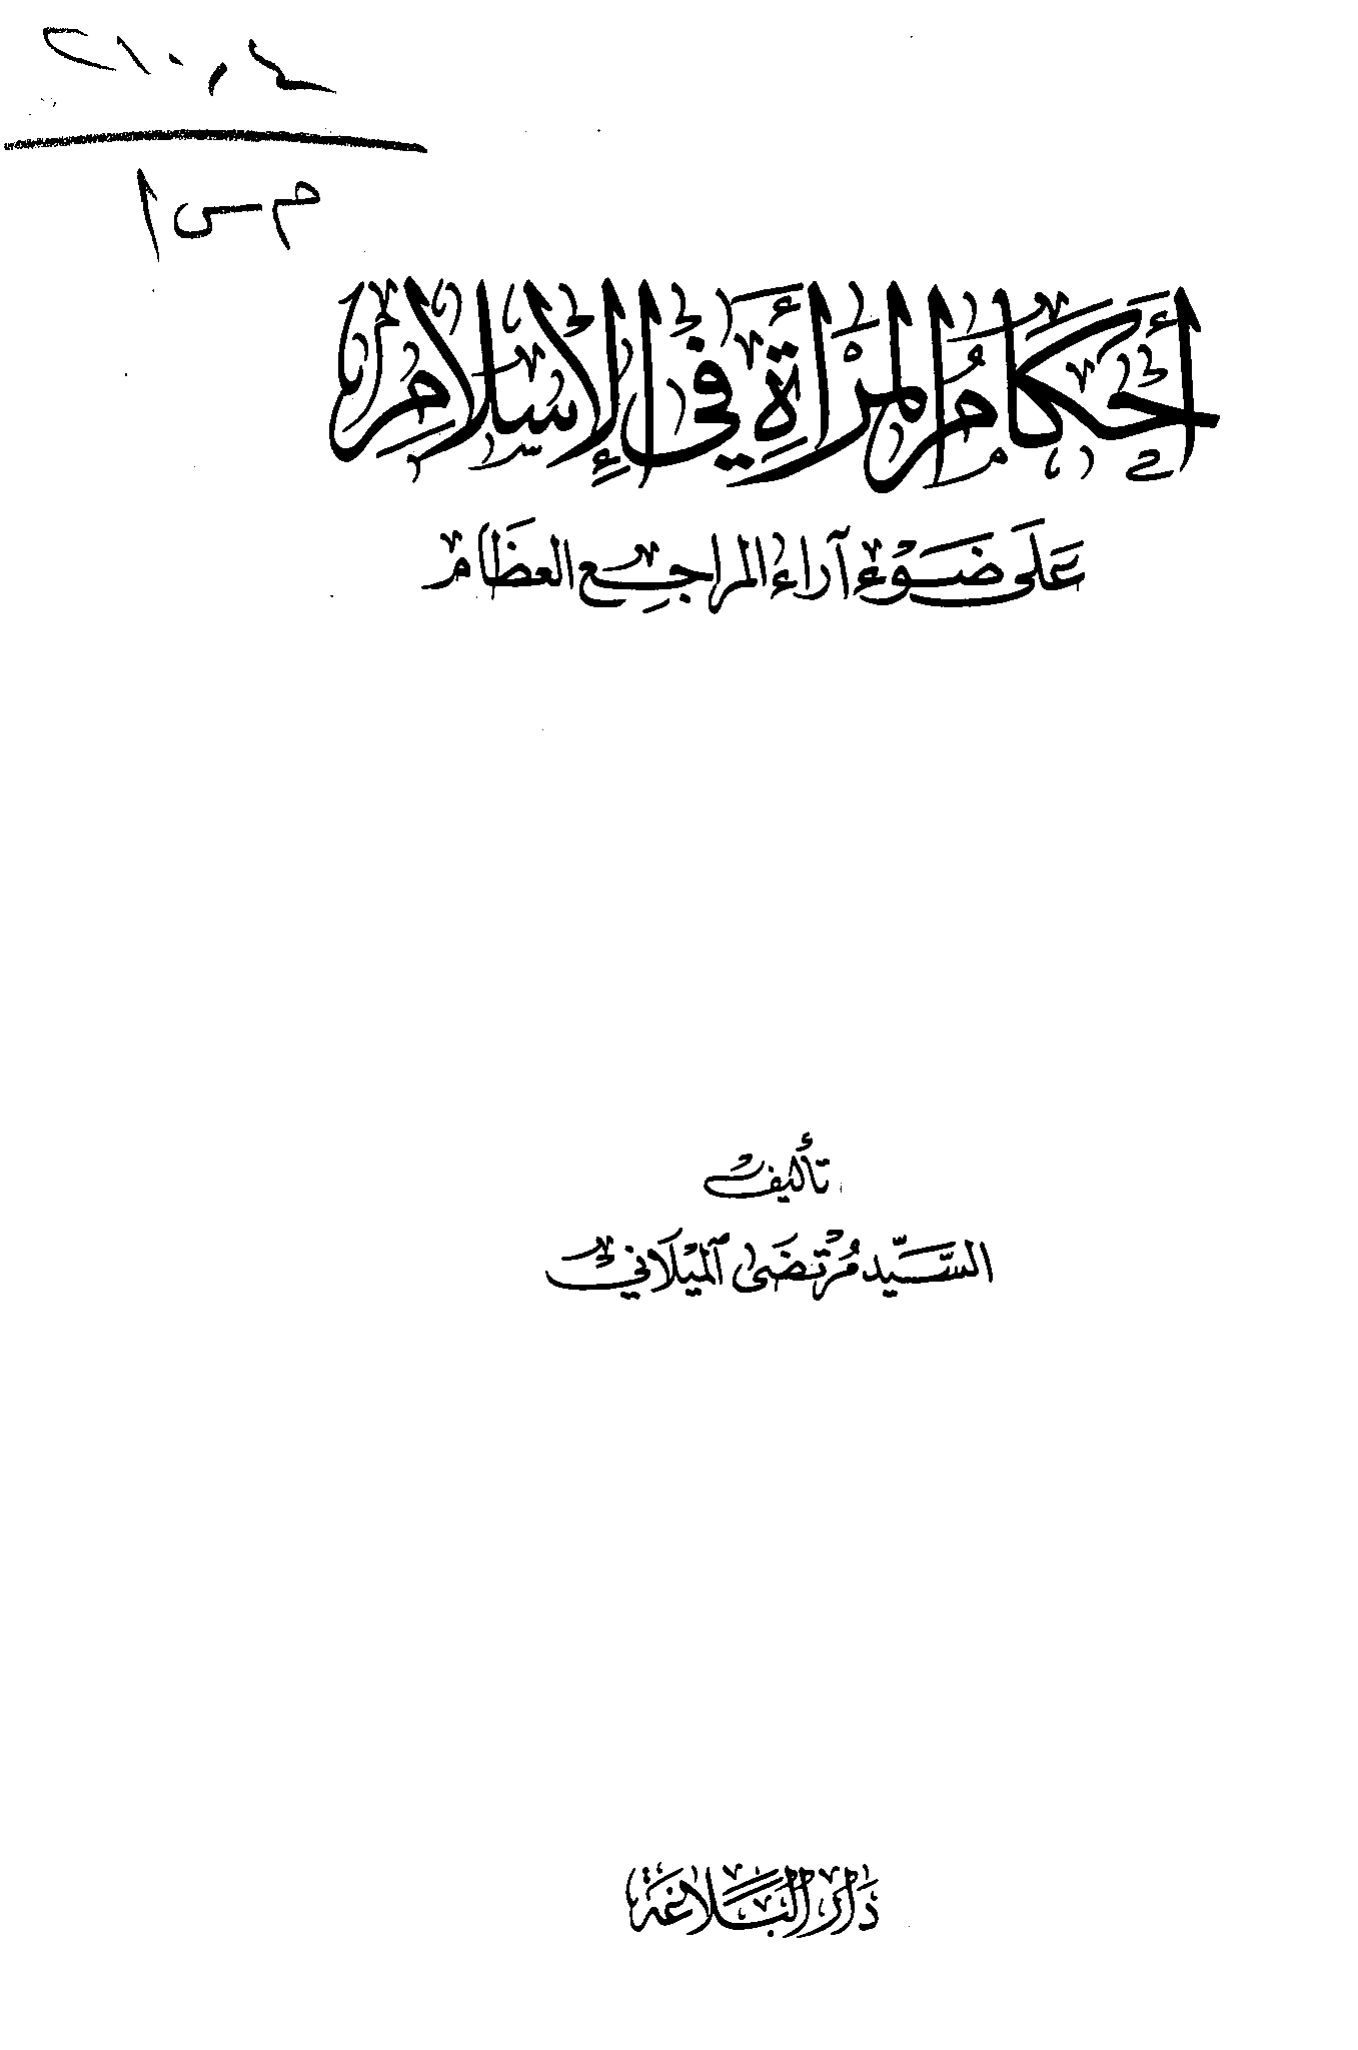 ٢١٠,٤
م س ا
أَحْكَامُ الْمَرْأَةِ فِي الْإِسْلَامِ
عَلَى ضَوْءِ آراء المراجع العظام
تأليف
السَّيِّد مُرْتَضَى الْمِيْلَانِي
دَار البَلَاغَة